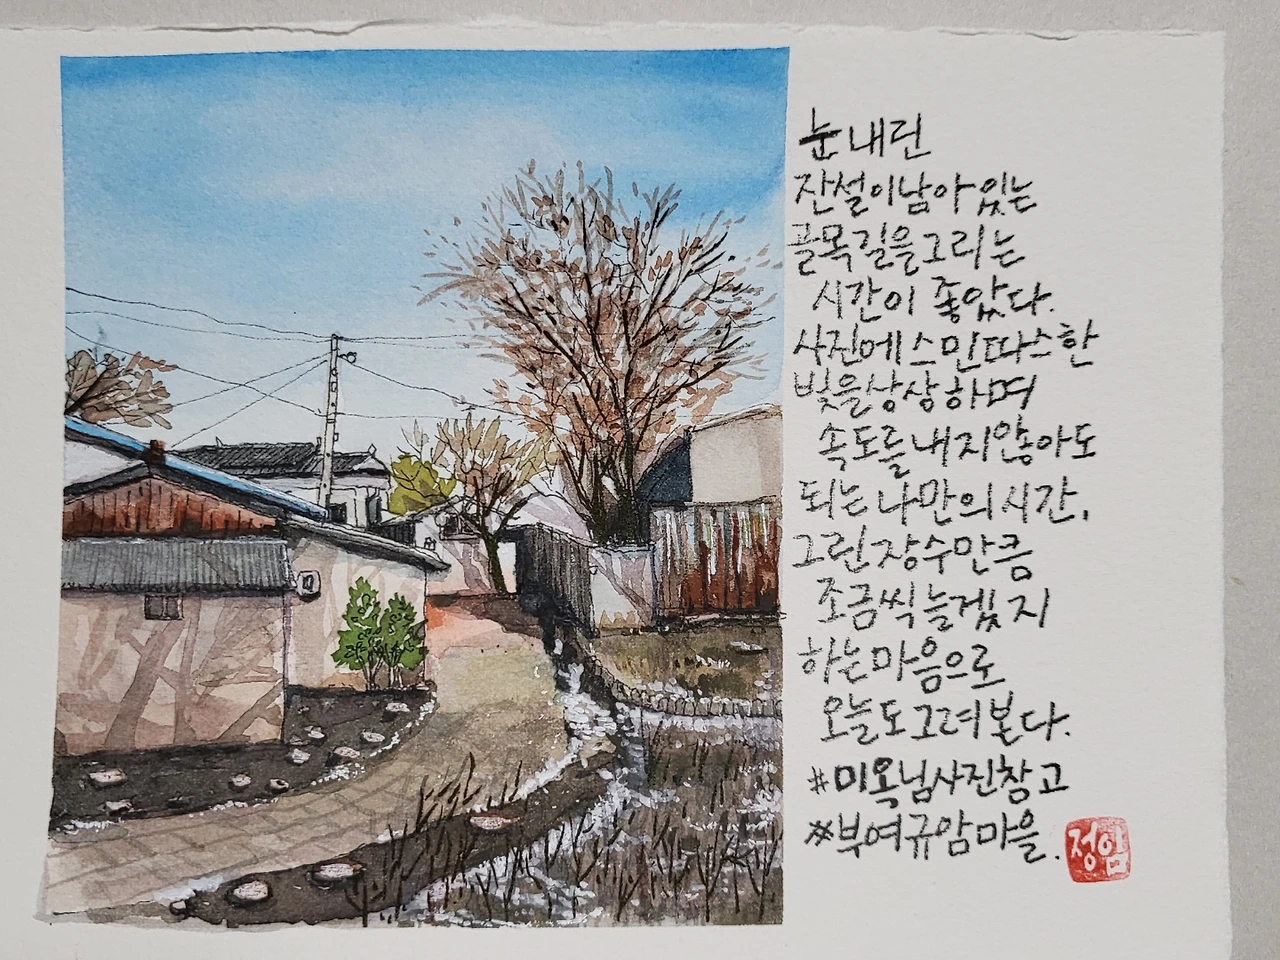 눈 내린
잔설이 남아 있는
골목길을 그리는
시간이 좋았다.
사진에 스민 따스한
빛을 상상하며
속도를 내지 않아도
되는 나만의 시간,
그린 장수만큼
조금씩 늘겠지
하는 마음으로
오늘도 그려본다.
#미옥님사진창고
#부여규암마을.
정임